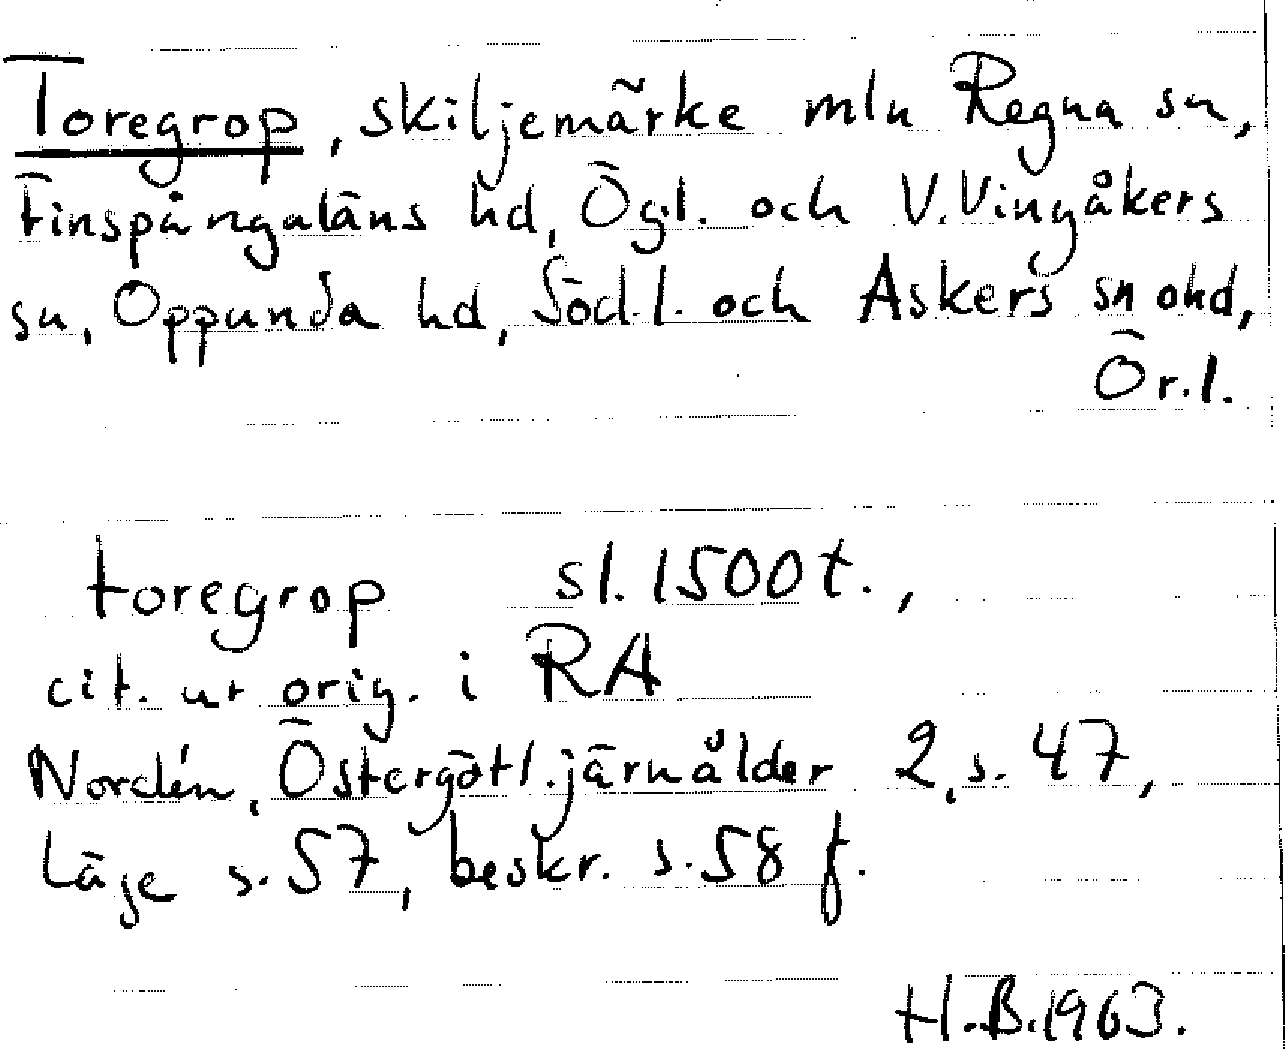 Toregrop, skiljemärke mln Regna sn,
Finspångaläns hd, Ögl. och V. Vingåkers
sn, Oppunda hd, Södl. och Askers sn ohd,
Ör.l.
toregrop sl. 1500 t.,
cit. ur orig. i RA
Nordén, Östergötl. järnålder 2, s. 47,
Läge s. 57, beskr. s. 58 f.
H.B. 1963.